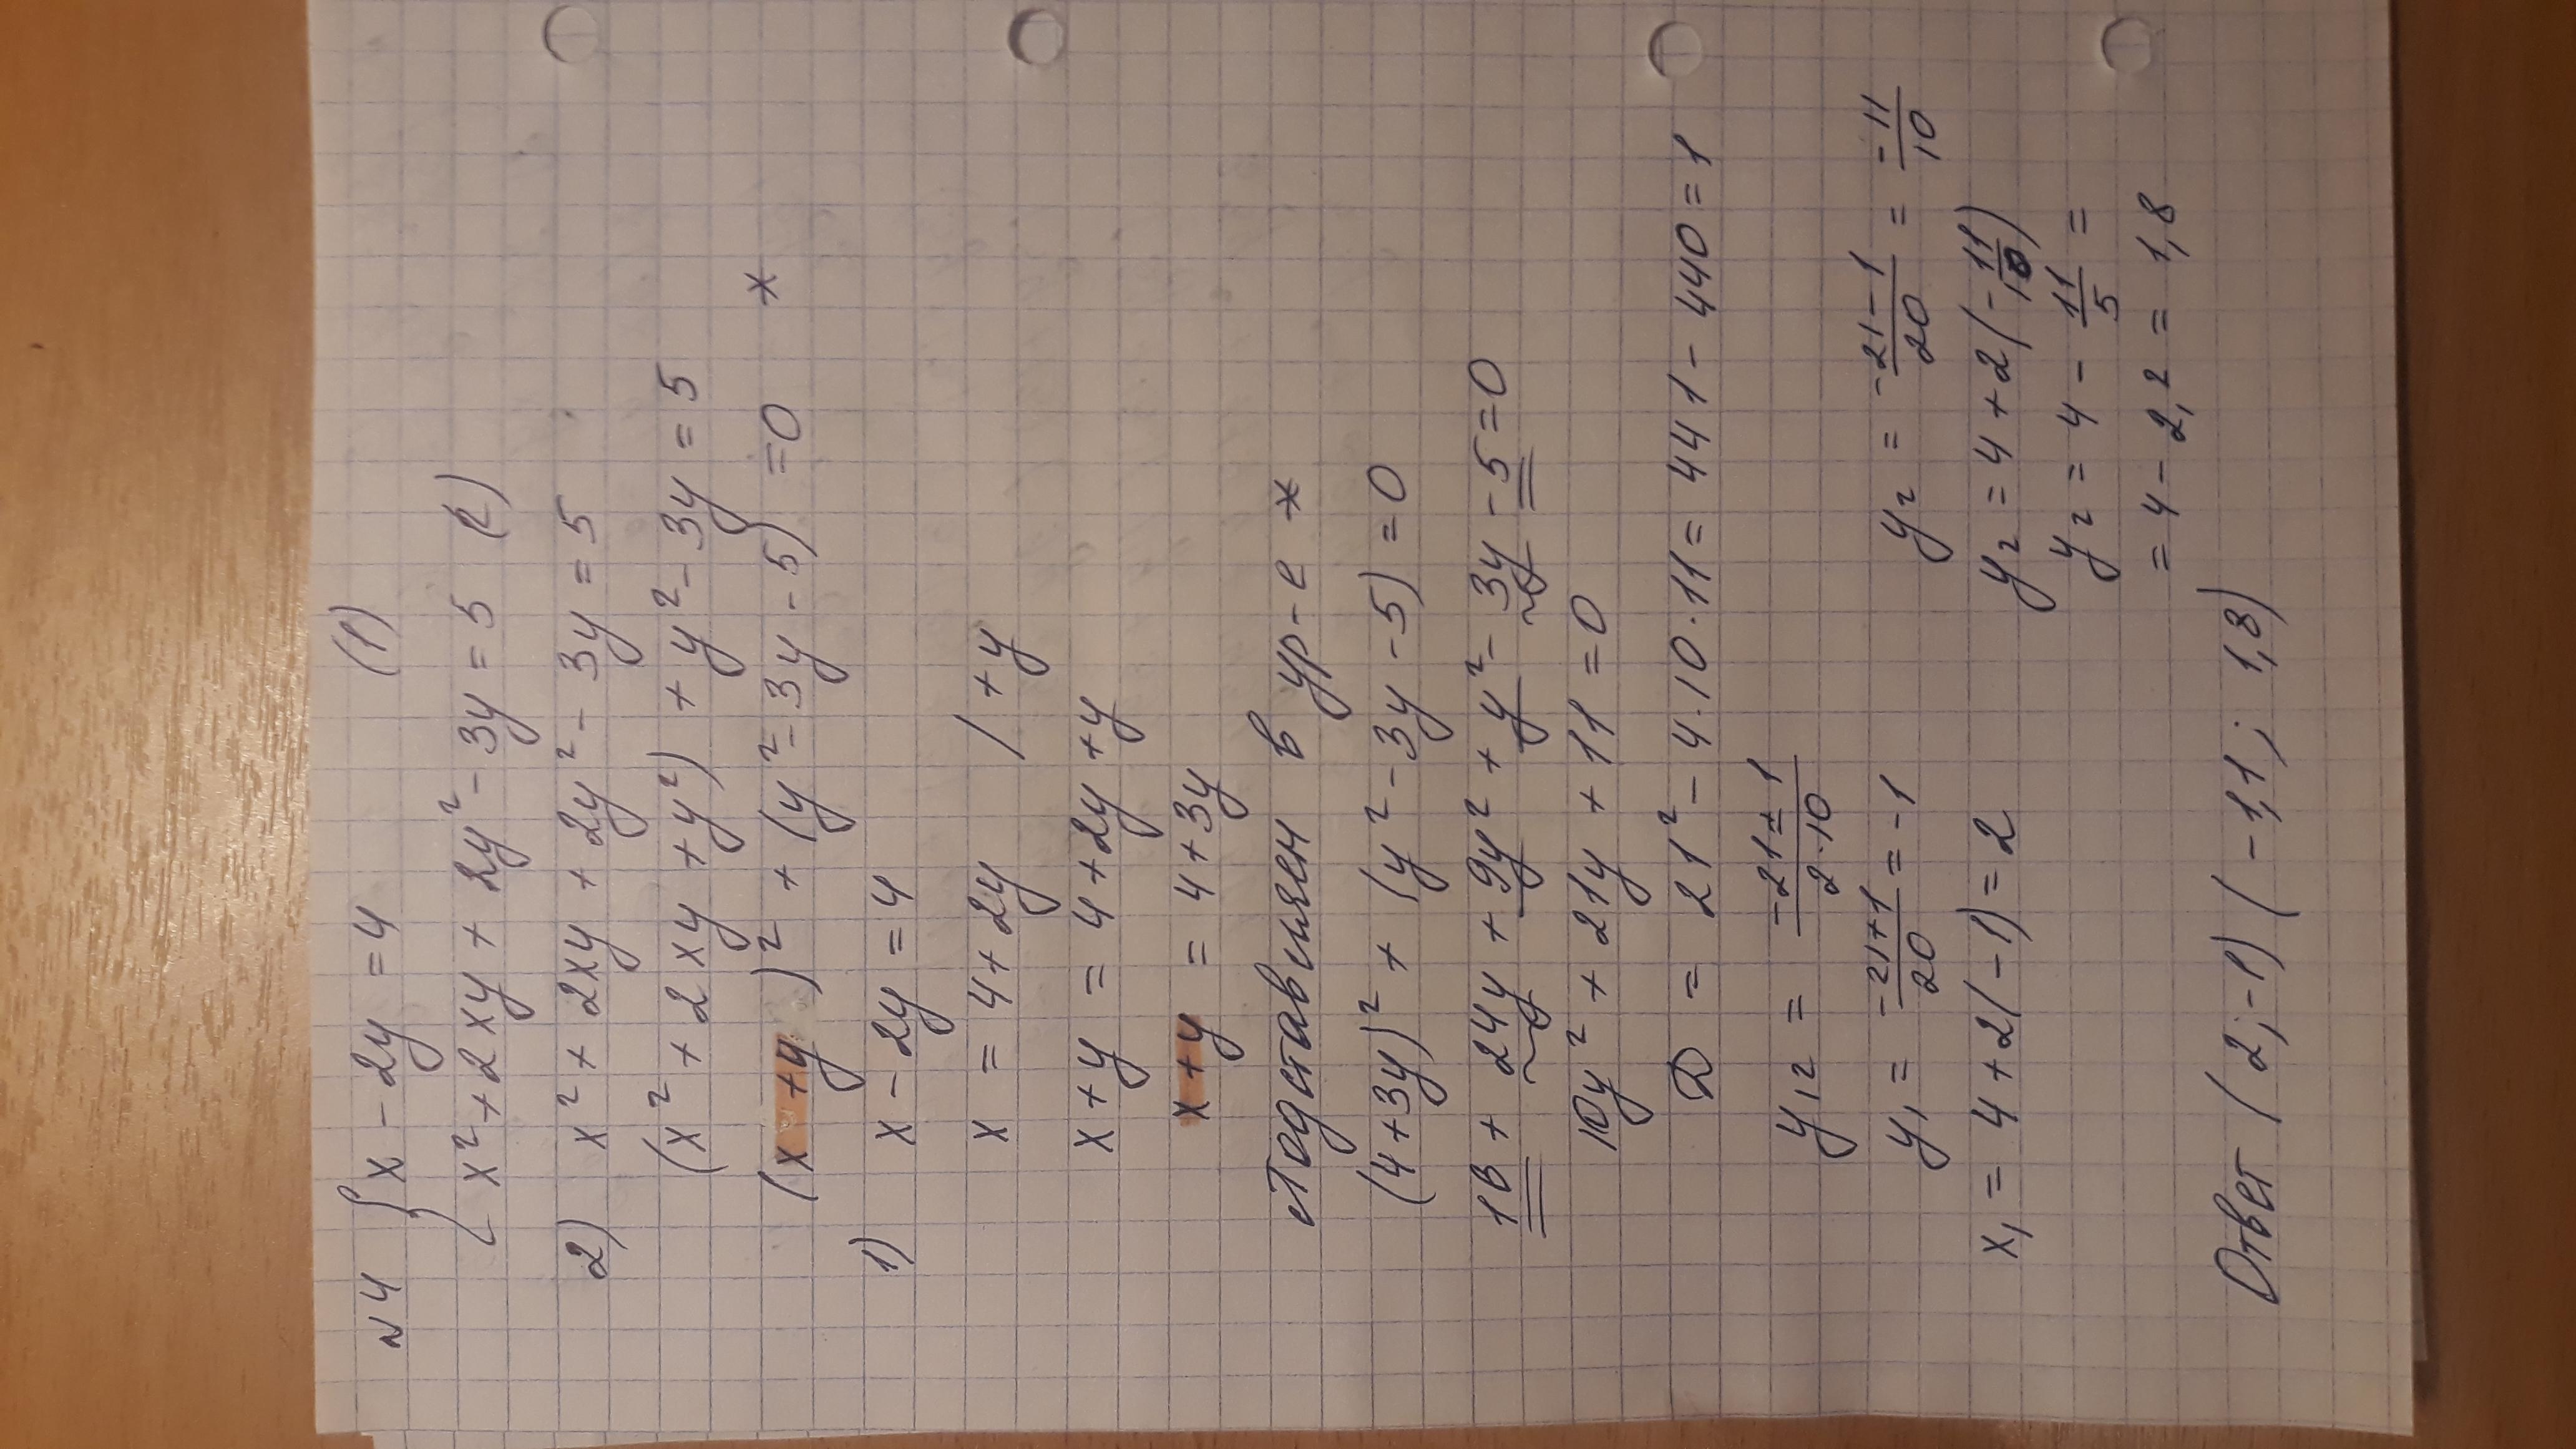 N4 { x - 2y = 4 (1)
x² + 2xy + 2y² - 3y = 5 (2)
2) x² + 2xy + 2y² - 3y = 5
(x² + 2xy + y²) + y² - 3y = 5
(x + y)² + (y² - 3y - 5) = 0 *
1) x - 2y = 4
x = 4 + 2y / + y
x + y = 4 + 2y + y
x + y = 4 + 3y
Подставляем в ур-е *
(4 + 3y)² + (y² - 3y - 5) = 0
16 + 24y + 9y² + y² - 3y - 5 = 0
10y² + 21y + 11 = 0
D = 21² - 4·10·11 = 441 - 440 = 1
y₁₂ = (-21 ± 1)/(2·10)
y₁ = (-21+1)/20 = -1
y₂ = (-21-1)/20 = -11/10
x₁ = 4 + 2(-1) = 2
y₂ = 4 + 2(-11/10)
y₂ = 4 - 11/5 =
= 4 - 2,2 = 1,8
Ответ (2; -1) (-1,1; 1,8)